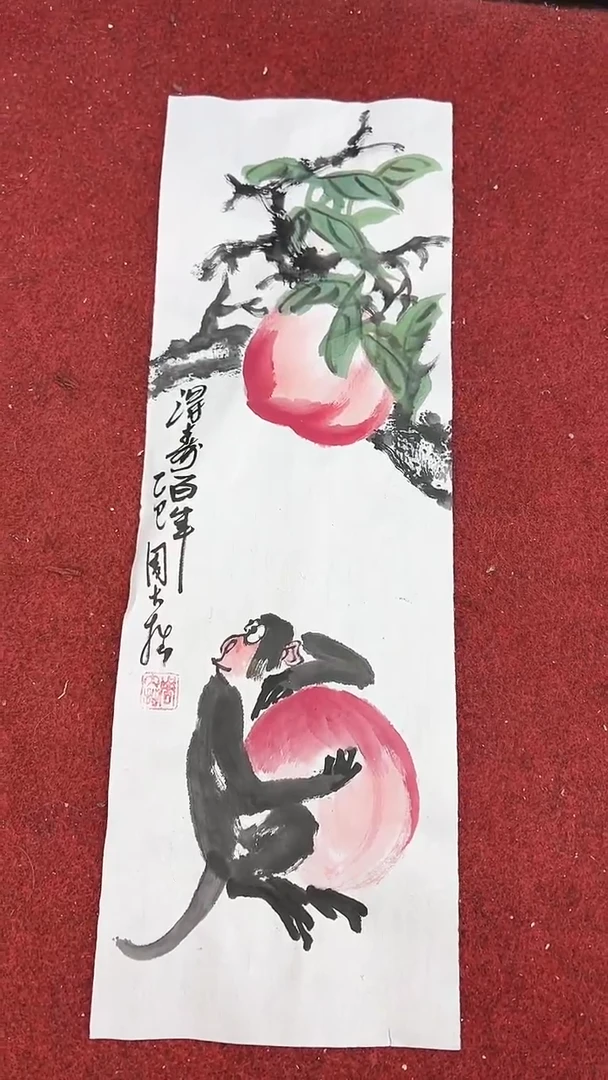 得寿百年
乙巳周大雄